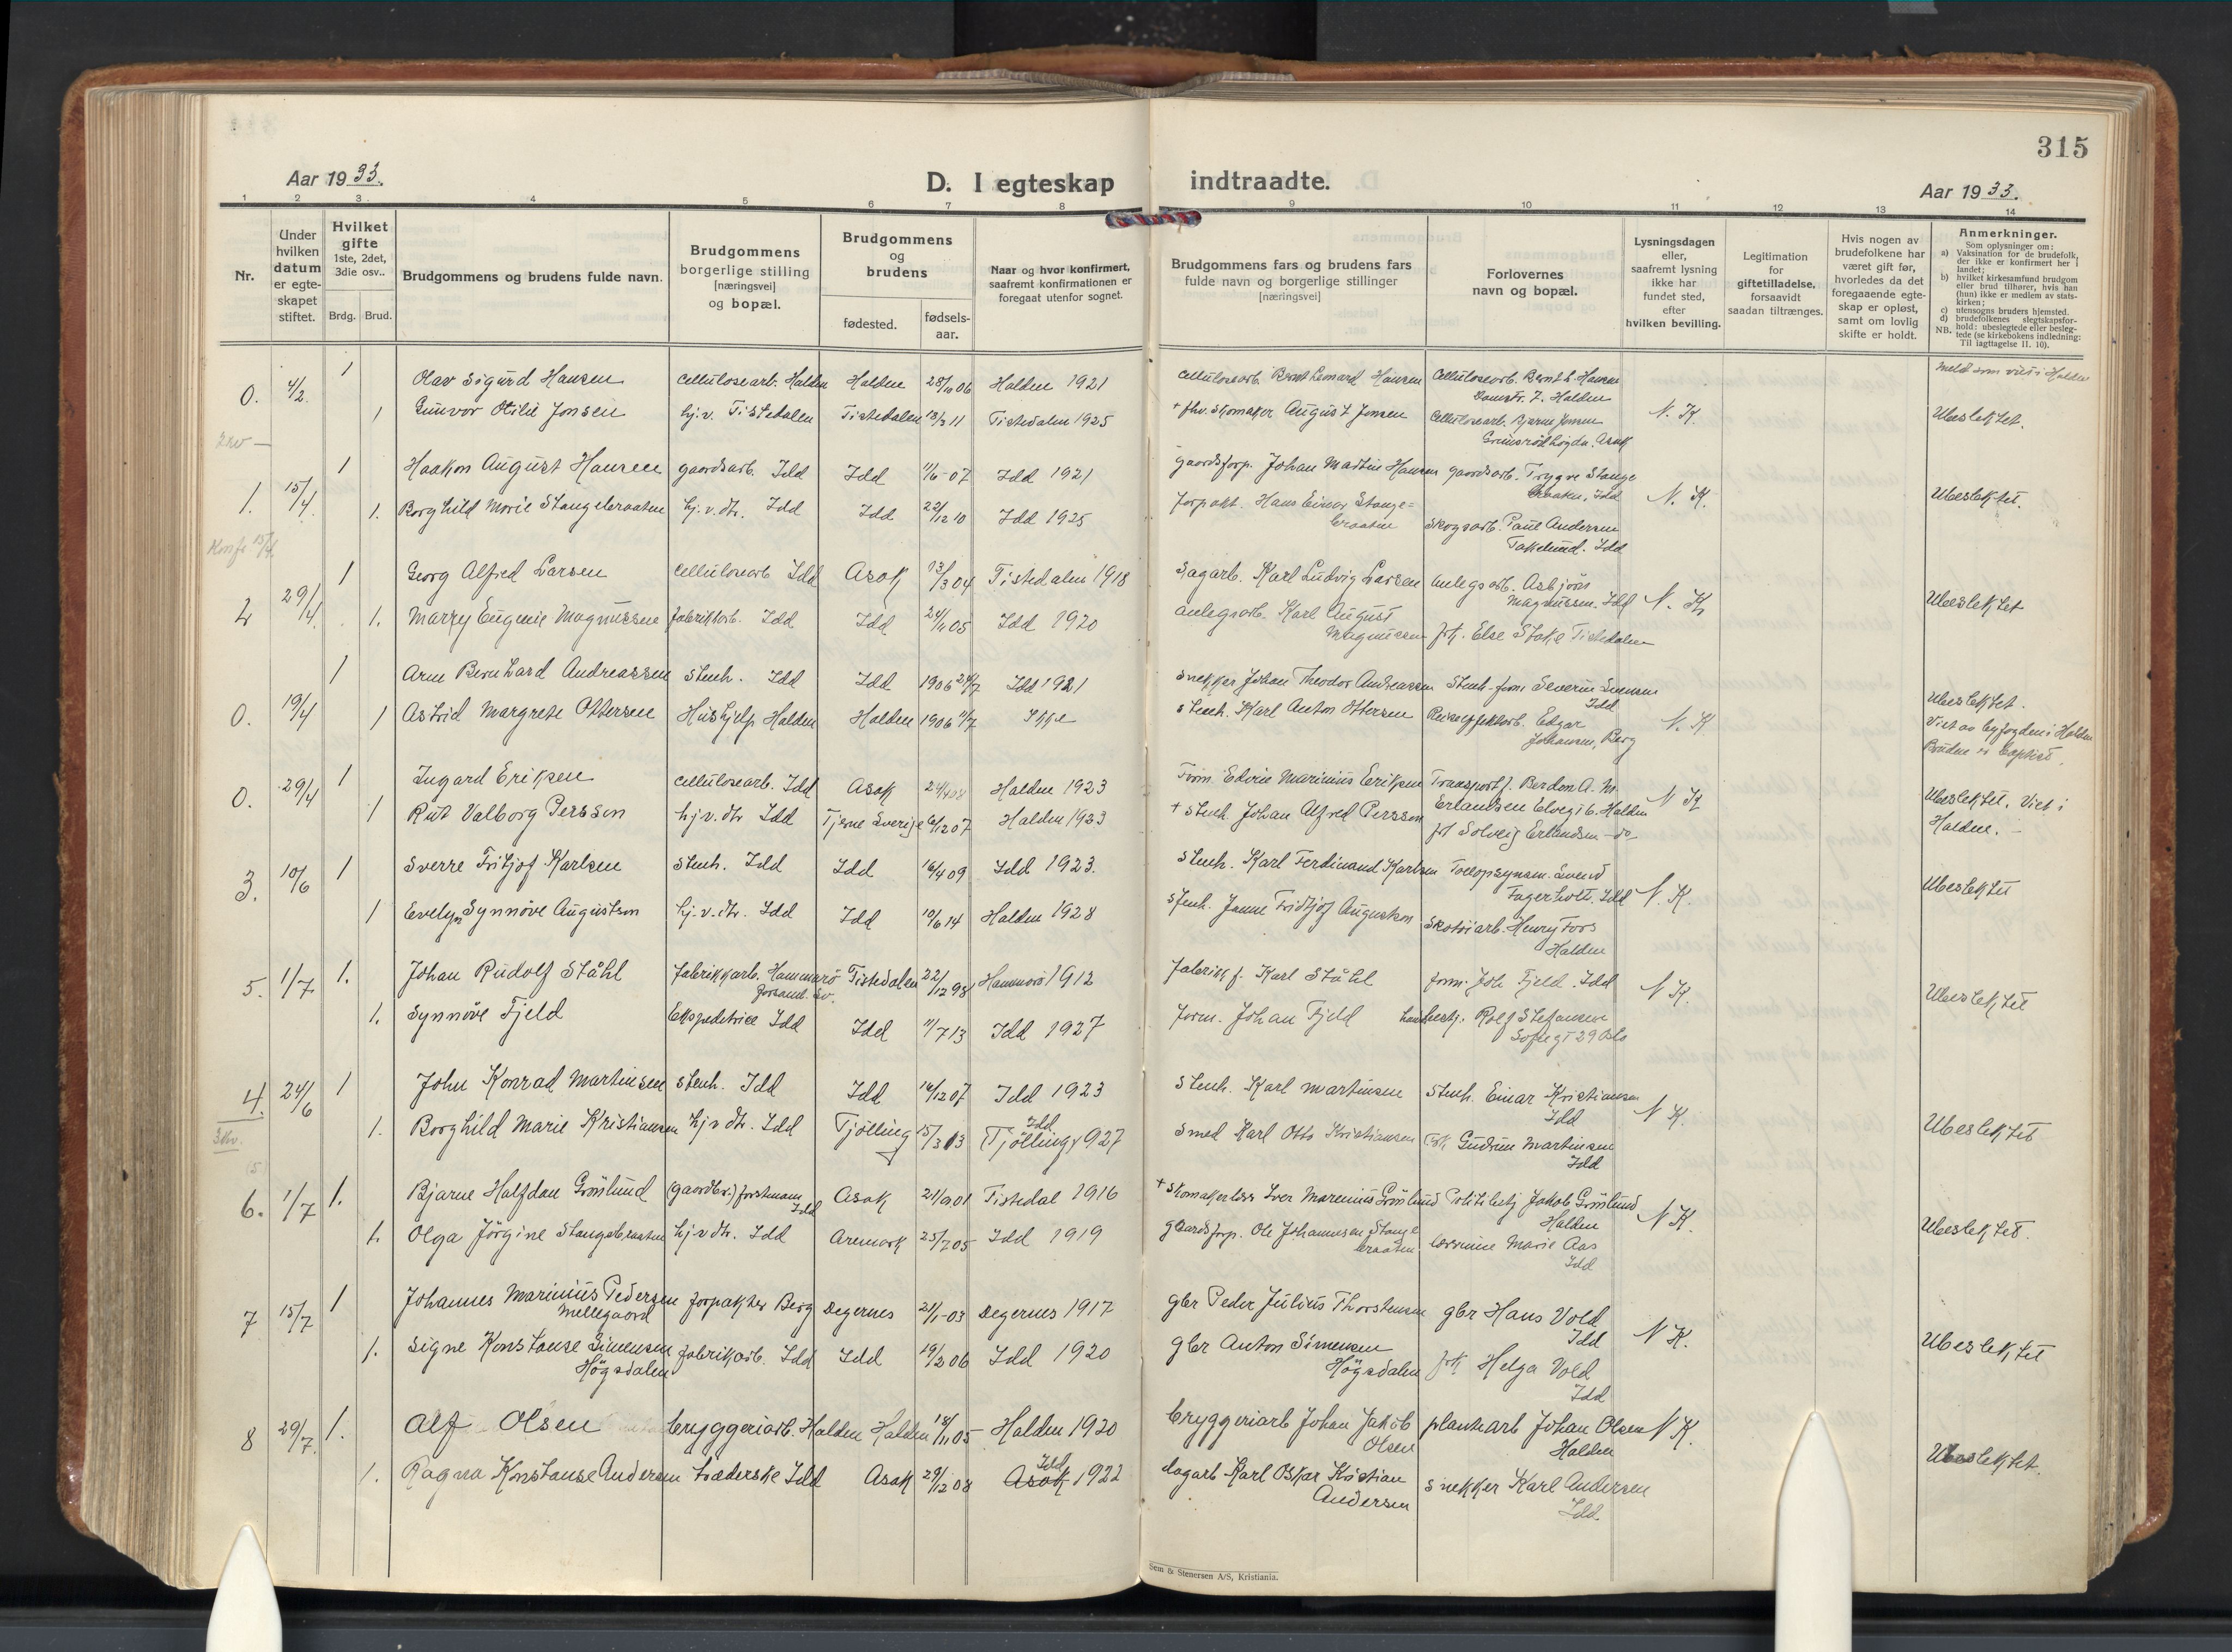 315
Aar 1933.
D. I egteskap indtraadte.
Aar 1933.
1 2 3 4 5 6 7 8 9 10 11 12 13 14
Nr.
Under hvilken datum er egte-skapet stiftet.
Hvilket gifte 1ste, 2det, 3die osv..
Brdg. Brud.
Brudgommens og brudens fulde navn.
Brudgommens borgerlige stilling [næringsvei] og bopæl.
Brudgommens og brudens
fødested.
fødsels-aar.
Naar og hvor konfirmert, saafremt konfirmationen er foregaat utenfor sognet.
Brudgommens fars og brudens fars fulde navn og borgerlige stillinger [næringsvei]
Forlovernes navn og bopæl.
Lysningsdagen eller, saafremt lysning ikke har fundet sted, efter hvilken bevilling.
Legitimation for giftetilladelse, forsaavidt saadan tiltrænges.
Hvis nogen av brudefolkene har været gift før, hvorledes da det foregaaende egte-skap er opløst, samt om lovlig skifte er holdt.
Anmerkninger.
Som oplysninger om:
a) Vaksination for de brudefolk, der ikke er konfirmert her i landet;
b) hvilket kirkesamfund brudgom eller brud tilhører, hvis han (hun) ikke er medlem av stats-kirken;
c) utensogns bruders hjemsted.
d) brudefolkenes slegtskapsfor-hold: ubeslegtede eller besleg-tede (se kirkebokens indledning: Til iagttagelse II. 10).
NB.
0. 4/2 1 Olav Sigurd Hansen Cellulosearb. Halden Halden 28/10 06 Halden 1921 Cellulosearb. Bernt Leonard Hansen Cellulosearb. Bernt L. Hansen
Damstr. 7. Halden
Meldt som viet i Halden
1 Gunvor Otilie Jonsen hj.v. Tistedalen Tistedalen 13/3 11 Tistedalen 1925 + fhv. Skomaker August Jonsen Cellulosearb. Bjarne Jonsen
Grimsrödhögda. Asak
N. K. Ubeslektet.
1. 15/4 1 Haakon August Hansen gaardsarb. Idd Idd 11/6-07 Idd 1921 gaardsforp. Johan Martin Hansen gaardsarb. Trygve Stange
braaten, Idd N. K. Ubeslektet.
1. Borghild Marie Stangebraaten hj.v.dtr. Idd Idd 22/12 10 Idd 1925 forpakt. Hans Einar Stange=
braaten Skogsarb. Paul Andersen
Takelund. Idd
2 29/4 1 Georg Alfred Larsen Cellulosearb Idd Asak 13/3 04 Tistedalen 1918 Sagarb. Karl Ludvig Larsen Anlegsarb. Asbjörn
Magnussen. Idd N. K. Ubeslektet
1. Marry Eugenie Magnussen fabrikkarb. Idd Idd 24/11 05 Idd 1920 anlegsarb. Karl August
Magnussen frk. Else Stake Tistedalen
0. 19/4 1 Arne Bernhard Andreassen Stenh. Idd Idd 1906 24/7 Idd 1921 Snekker Johan Theodor Andreassen Stenh. form Severin Svensen
Idd Ubeslektet.
1 Astrid Margrete Ottersen Hushjelp Halden Halden 1906 11/7 Ikke Stenh. Karl Anton Ottersen Edgar
Johansen, Berg N. K Viet av byfogden i Halden
Bruden er baptist.
0. 29/4 1 Ingard Eriksen Cellulosearb. Idd Asak 24/4 08 Halden 1923 Form. Edvin Marinius Eriksen Transportf. A. M.
Erlandsen Elvegt 6. Halden N K Ubeslektet. Viet i
Halden.
1 Rut Valborg Persson hj.v.dtr Idd Tjerne Sverige 6/12 07 Halden 1923 + Stenh. Johan Alfred Persson frk Solveig Erlandsen -do-
3. 10/6 1 Sverre Fritjof Karlsen Stenh. Idd Idd 16/4 09 Idd 1923. Stenh. Karl Ferdinand Karlsen Toloppsynsm. Svend
Fagerholt. Idd N. K. Ubeslektet
1 Evelyn Synnöve Augustson hj.v.dtr. Idd Idd 10/6 14 Halden 1928 Stenh. Janne Fridtjof Augustson Skotöiarb. Henry Foss
Halden
5. 1/7 1. Johan Rudolf Ståhl fabrikkarb. Hammarö
forsaml. Sv. Tistedalen 22/12 98 Hammarö 1912 fabrikk f. Karl Ståhl form. Joh Fjeld. Idd N K. Ubeslektet
1. Synnöve Fjeld Ekspeditrice Idd Idd 11/7 13 Idd 1927 form. Johan Fjeld Rolf Stefansen
Sofiegt 29 Oslo
4. 24/6 1 John Konrad Martinsen Stenh. Idd Idd 14/12 07 Idd 1923 Stenh. Karl Martinsen Stenh. Einar Kristiansen
Idd N K. Ubeslektet
1. Borghild Marie Kristiansen hj v dtr. Idd Tjölling 15/3 13 Idd (Tjölling) 1927 Smed Karl Otto Kristiansen Frk Gudrun Martinsen
Idd
6. 1/7 1. Bjarne Halfdan Grönlund (gaardbr.) forstmann
Idd Asak 21/9 01 Tistedal 1916 + Skomakerlær. Iver Marenius Grönlund Politibetj Jakob Grönlund
Halden N K. Ubeslektet.
1. Olga Jörgine Stangebraaten hj v dtr. Idd Aremark 25/7 05 Idd 1919 gaardsforp. Ole Johannesen Stange
braaten lærerinne Marie Aas
Idd
7 15/7 1 Johannes Marinius Pedersen
Mellegaard forpakter Berg Degernes 21/1-03 Degernes 1917 gbr Peder Julius Thorstensen gbr Hans Vold
Idd N K. Ubeslektet
1. Signe Konstanse Simensen
Högsdalen fabrikarb. Idd Idd 19/2 06 Idd 1920 gbr Anton Simensen
Högsdalen frk Helga Vold
Idd
8 29/7. 1. Alf Olsen bryggeriarb. Halden Halden 18/11 05 Halden 1920 bryggeriarb Johan Jakob
Olsen plankearb Johan Olsen
Halden N K. Ubeslektet.
1. Ragna Konstanse Andersen Idd Asak 29/12 08 Idd Asak 1922 dagarb Karl Oskar Kristian
Andersen snekker Karl Andersen
Idd
Sem & Stenersen A/S, Kristiania.